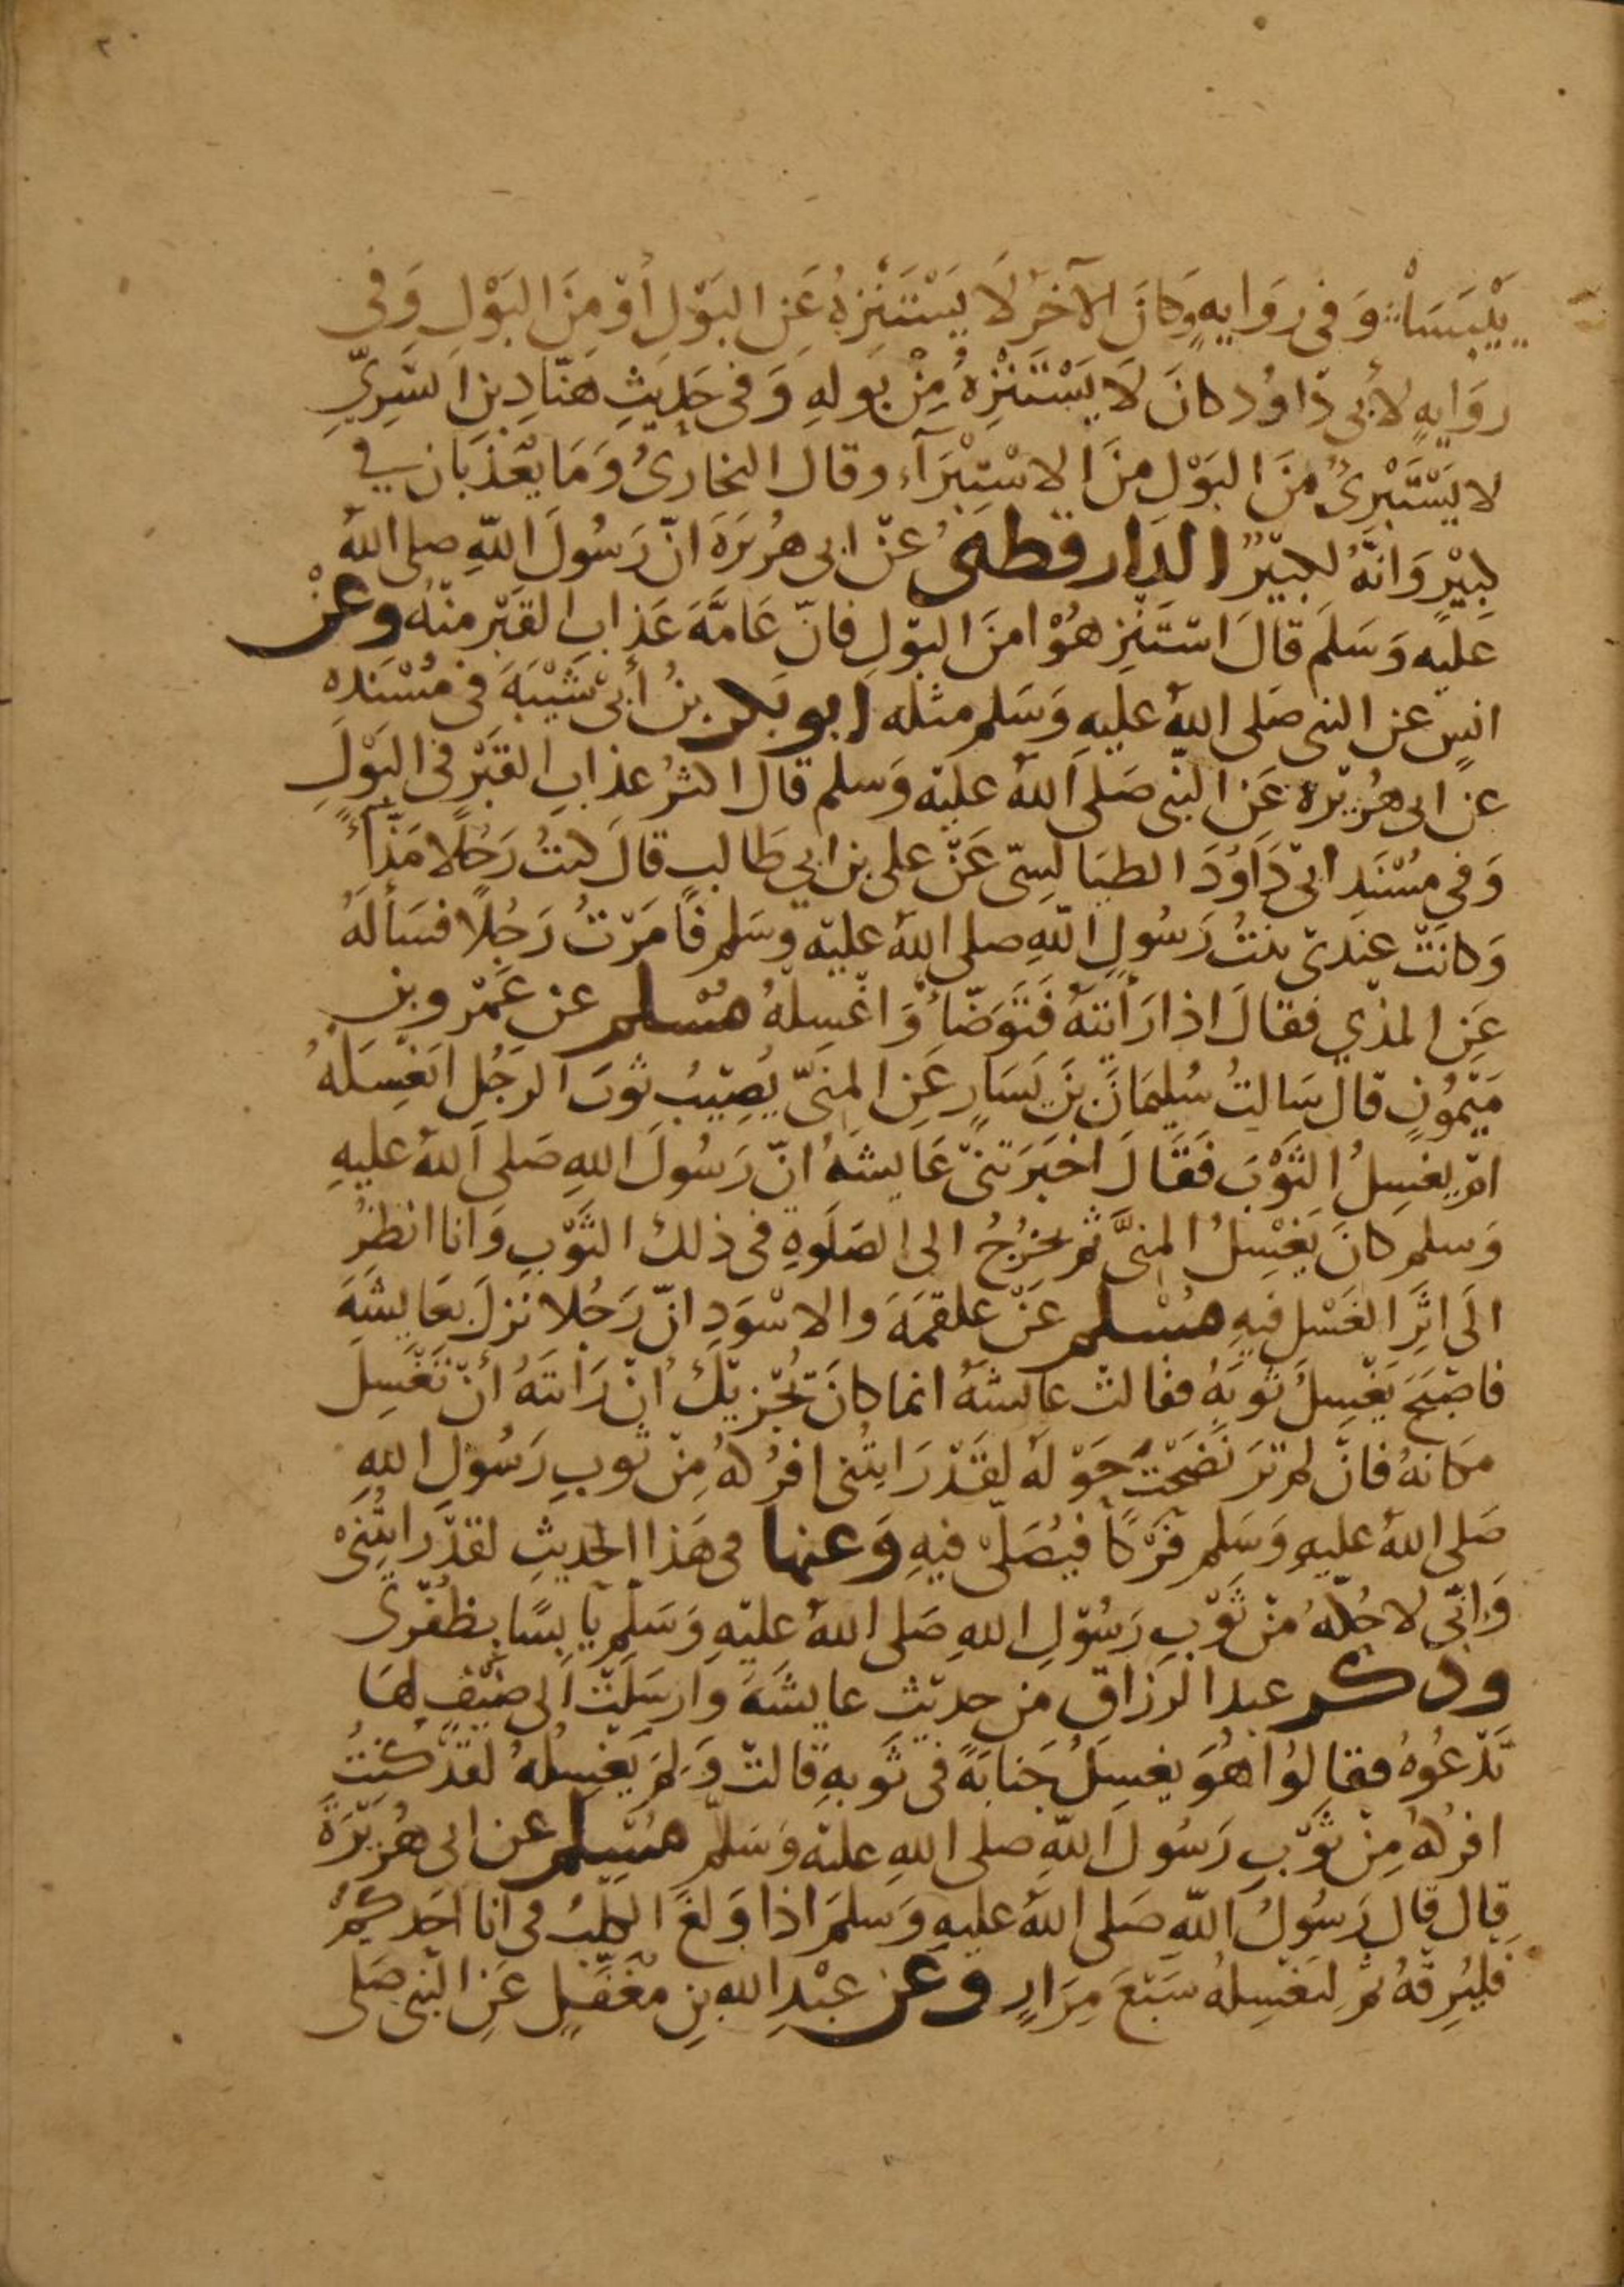 ٢٠
يَيْبَسَا وَفي رِوَايةٍ وَكَانَ الآخَرُ لَا يَسْتَنْزِهُ عَنِ البَوْلِ أَوْ مِنَ البَوْلِ وَفى
روَايةٍ لأَبي دَاوُد كانَ لَا يَسْتَنْزِهُ مِنْ بَولهِ وَفى حَديثِ هَنّادِ بنِ السَّرِيِّ
لا يَسْتَبْرِئُ مِنَ البَوْلِ مِنَ الاسْتِبْرَآءِ وقال البخارىُ وَمَا يُعَذَّبَانِ في
كبِيْرٍ وَانّهُ لكبِيْرٌ الدارقطنى عَنْ ابى هُرَيرَةَ انّ رَسُولَ اللّهِ صلى اللهُ
عليْه وَسَلمَ قالَ اسْتَنْزِهُوْا منَ البوْلِ فانّ عَامَّةَ عَذابِ القَبْرِ منْهُ وعَنْ
انسٍ عن النبى صَلى اللهُ عليهِ وَسَلم مثله ابو بكر بنُ أبى شَيْبَةَ فى مُسْنَده
عن ابى هُرَيْرة عَن النّبى صَلى اللهُ عليْه وَسلم قال اكثرُ عذابِ القَبْرِ في البَوْلِ
وَفى مُسْنَدِ ابى دَاوُدَ الطيَالسِىّ عَنْ على بن ابي طَالبٍ قالَ كنتُ رَجُلًا مَذَّآءً
وَكانَتْ عنْدىْ بنتُ رَسُولِ اللّهِ صلى اللهُ عليْه وَسَلم فأمَرْتُ رَجُلًا فسَألَهُ
عَنِ المذْي فقالَ اذا رَأيْتَهُ فَتَوَضّأْ وَاغْسِلهُ مُسْلم عن عَمْرو بن
مَيْمُونٍ قال سَالتُ سُليمَانَ بنَ يَسَارٍ عَنِ المنىّ يُصِيْبُ ثوبَ الرجُلِ ايَغْسِلهُ
ام يغسِلُ الثَّوْبَ فَقالَ اخبَرَتنىْ عَايشةُ انّ رَسُولَ اللهِ صَلى اللهُ عليهِ
وَسلم كانَ يَغْسِلُ المنىَّ ثم يخرُجُ الى الصَلَوةِ فى ذلك الثوْبِ وَانا انظرُ
الَى اثَرِ الغَسْلِ فيهِ مُسْلم عَنْ علقمَةَ والاسْوَدِ انّ رَجُلا نزلَ بعَايشَةَ
فاصْبَحَ يَغْسِلُ ثوبَهُ فقالتْ عائشةُ انما كانَ يُجْزِيْكَ انْ رَايتَهُ أنْ تَغْسِلَ
مَكانهُ فانْ لم ترَ نَضَحْتَ حَوْلهُ لقَدْ رَايتُنى افرُكهُ مِنْ ثوبِ رَسُولِ اللهِ
صَلى اللهُ عليهِ وَسَلم فرْكًا فيُصَلّى فيهِ وَعنها فى هَذا الحديثِ لقدْ رايتُنىْ
وَانّى لاحُكّهُ منْ ثَوْبِ رَسُوْلِ اللهِ صَلى اللهُ عليْهِ وَسَلم يَابسًا بظُفُرى
وذكر عبد الرزاق من حديْثِ عايشَةَ وارسَلَتْ الى ضَيْفٍ لهَا
تَدْعُوهُ فقالوُا هُوَ يغسِلُ جَنابَةً فى ثَوبهِ قالتْ وَلِمَ يَغسِلهُ لقدْ كُنتُ
افركهُ مِنْ ثوْبِ رَسُولَ اللّهِ صلى اللهِ عليْه وَسَلّم مُسْلم عن ابى هُرَيْرَةَ
قال قال رَسُولُ اللّهِ صَلى اللهُ عليهِ وَسلمَ اذا وَلغَ الكلْبُ فى انا احَدكُمْ
فليُرِقهُ ثمّ لْيَغْسِلهُ سَبْعَ مِرَارٍ وعن عبْدِ اللهِ بنِ مُغَفّلٍ عَنِ النّبى صَلى